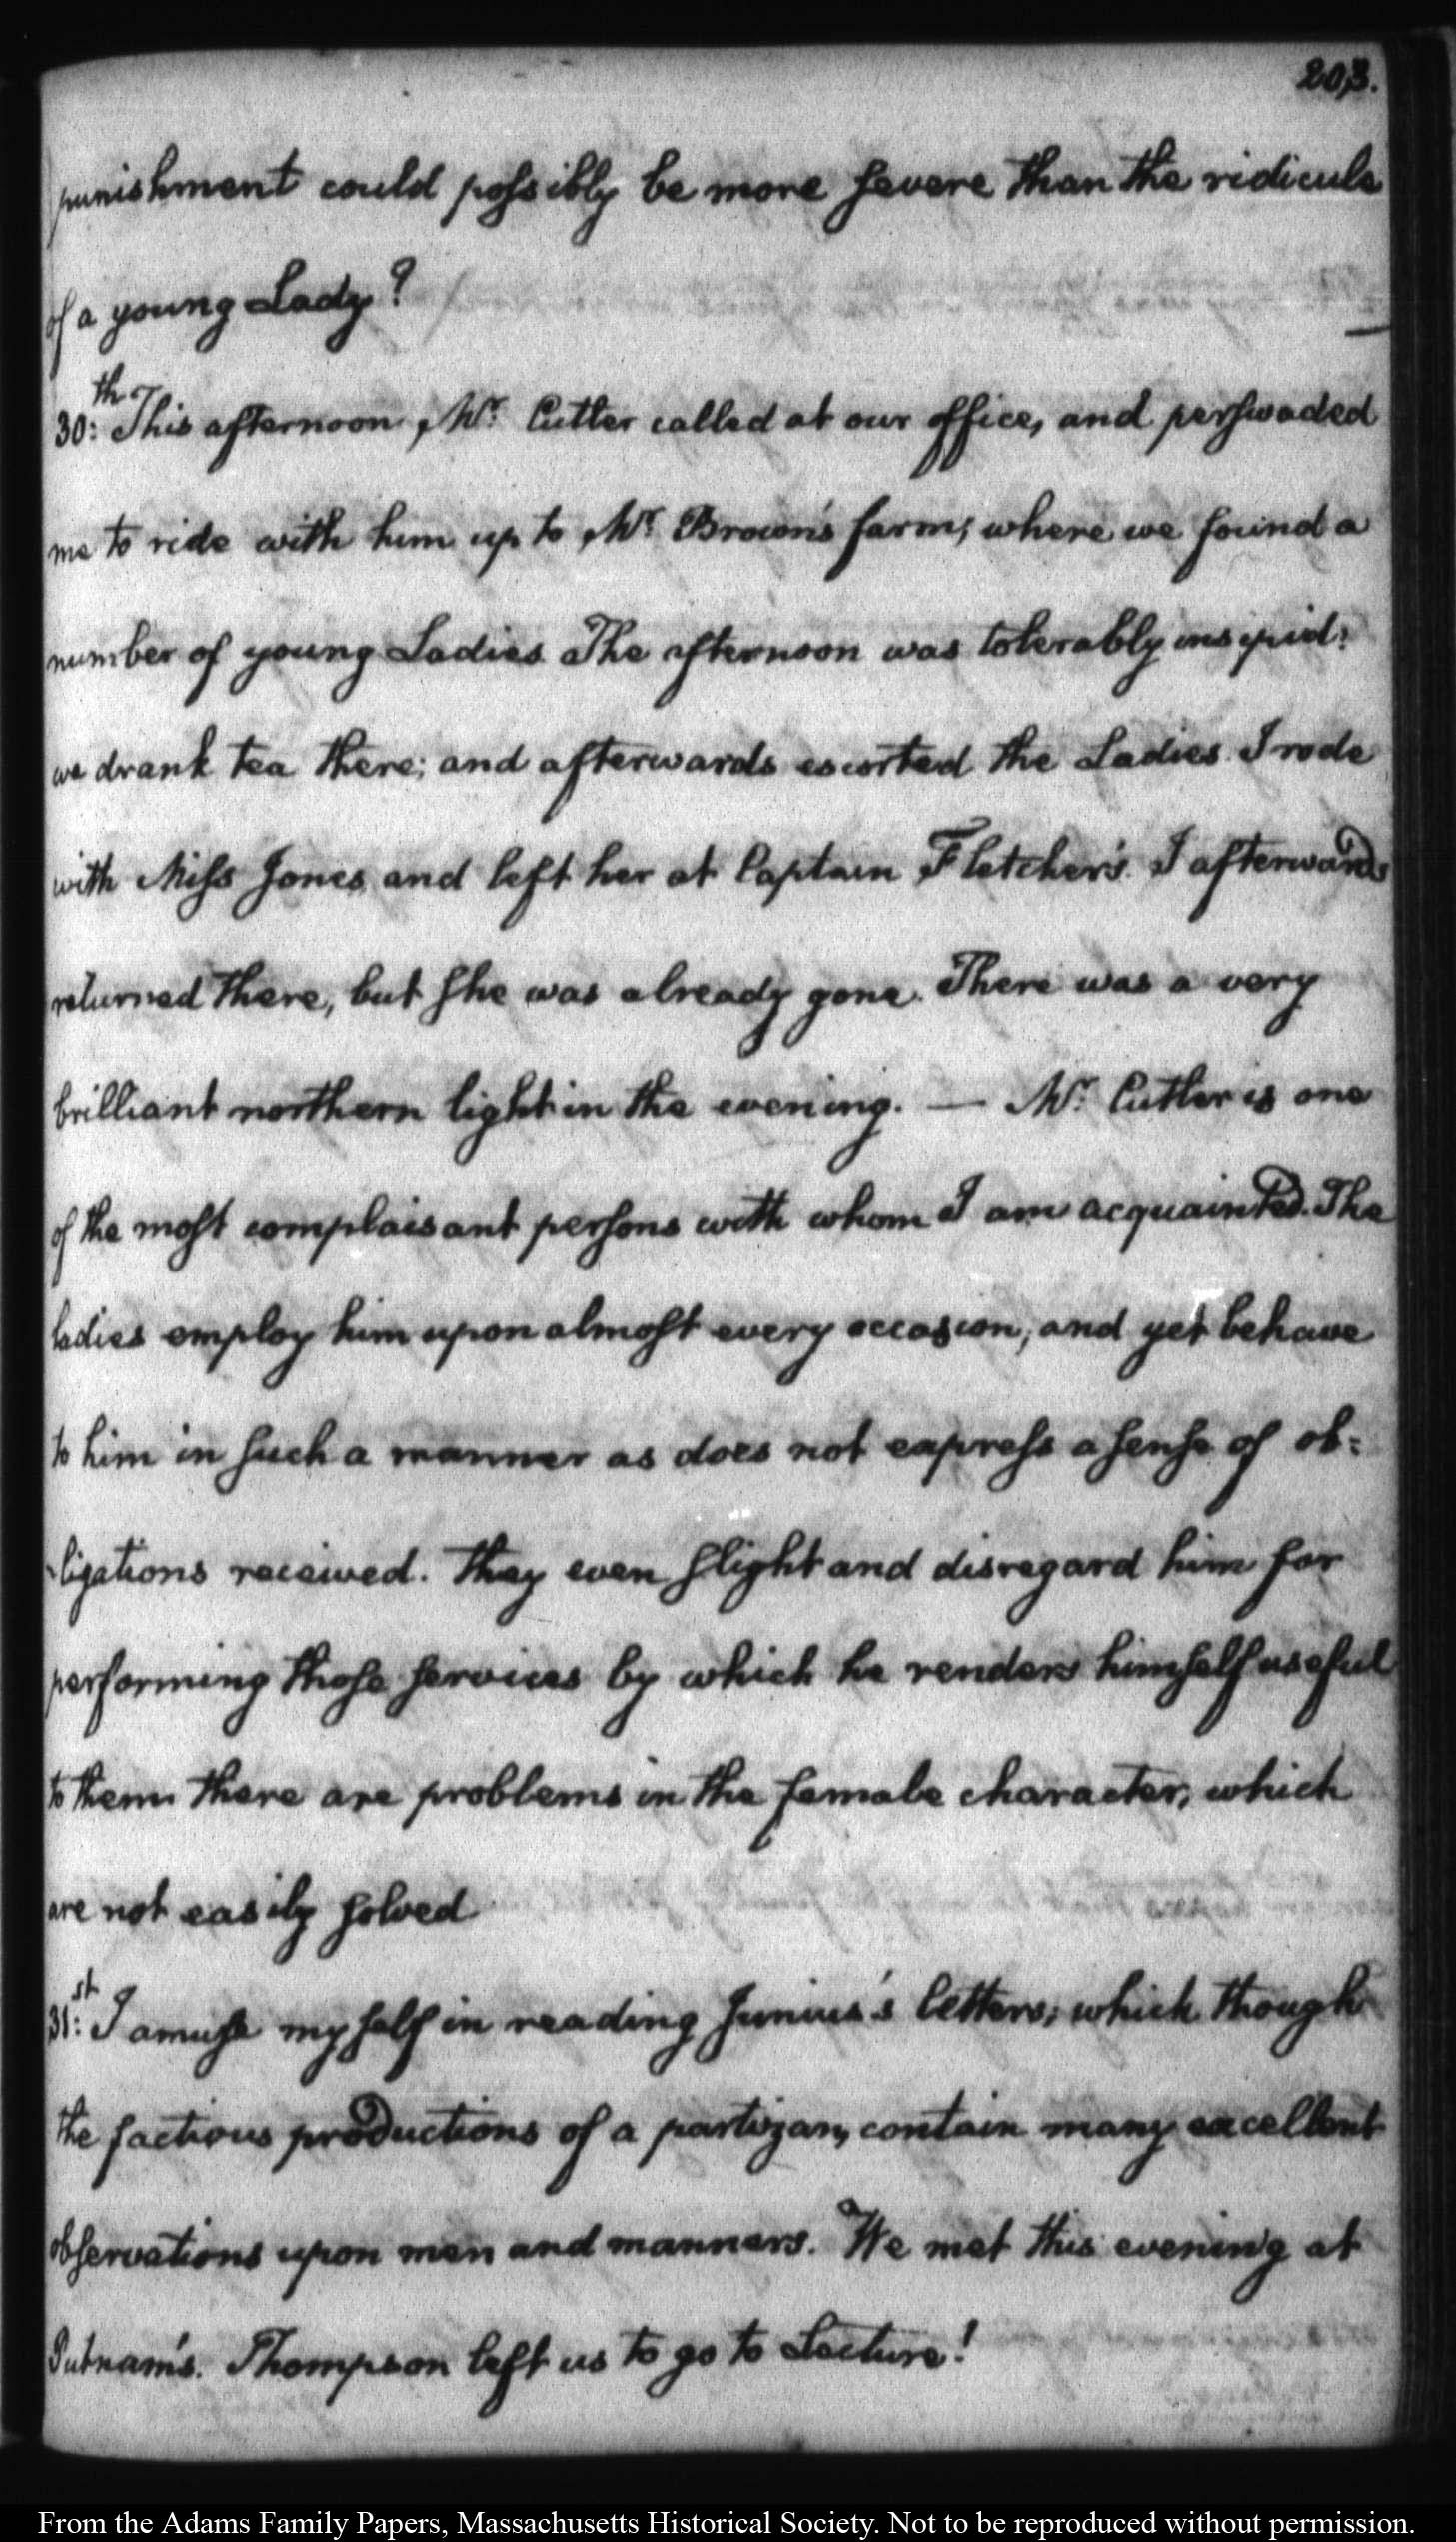 203.
punishment could possibly be more severe than the ridicule
of a young Lady?
30:th This afternoon, Mr. Cutler called at our office, and perswaded
me to ride with him up to Mr. Brown's farm; where we found a
number of young Ladies. The afternoon was tolerably insipid:
we drank tea there; and afterwards escorted the Ladies. I rode
with Miss Jones, and left her at Captain Fletcher's. I afterwards
returned there, but she was already gone. There was a very
brilliant northern light in the evening. — Mr. Cutler is one
of the most complaisant persons with whom I am acquainted. The
ladies employ him upon almost every occasion, and yet behave
to him in such a manner as does not express a sense of ob=
=ligations received. They even slight and disregard him for
performing those services by which he renders himself useful
to them there are problems in the female character, which
are not easily solved
31:st I amuse myself in reading Junius's letters; which though
the factious productions of a partizan, contain many excellent
observations upon men and manners. We met this evening at
Putnam's. Thompson left us to go to Lecture!
From the Adams Family Papers, Massachusetts Historical Society. Not to be reproduced without permission.